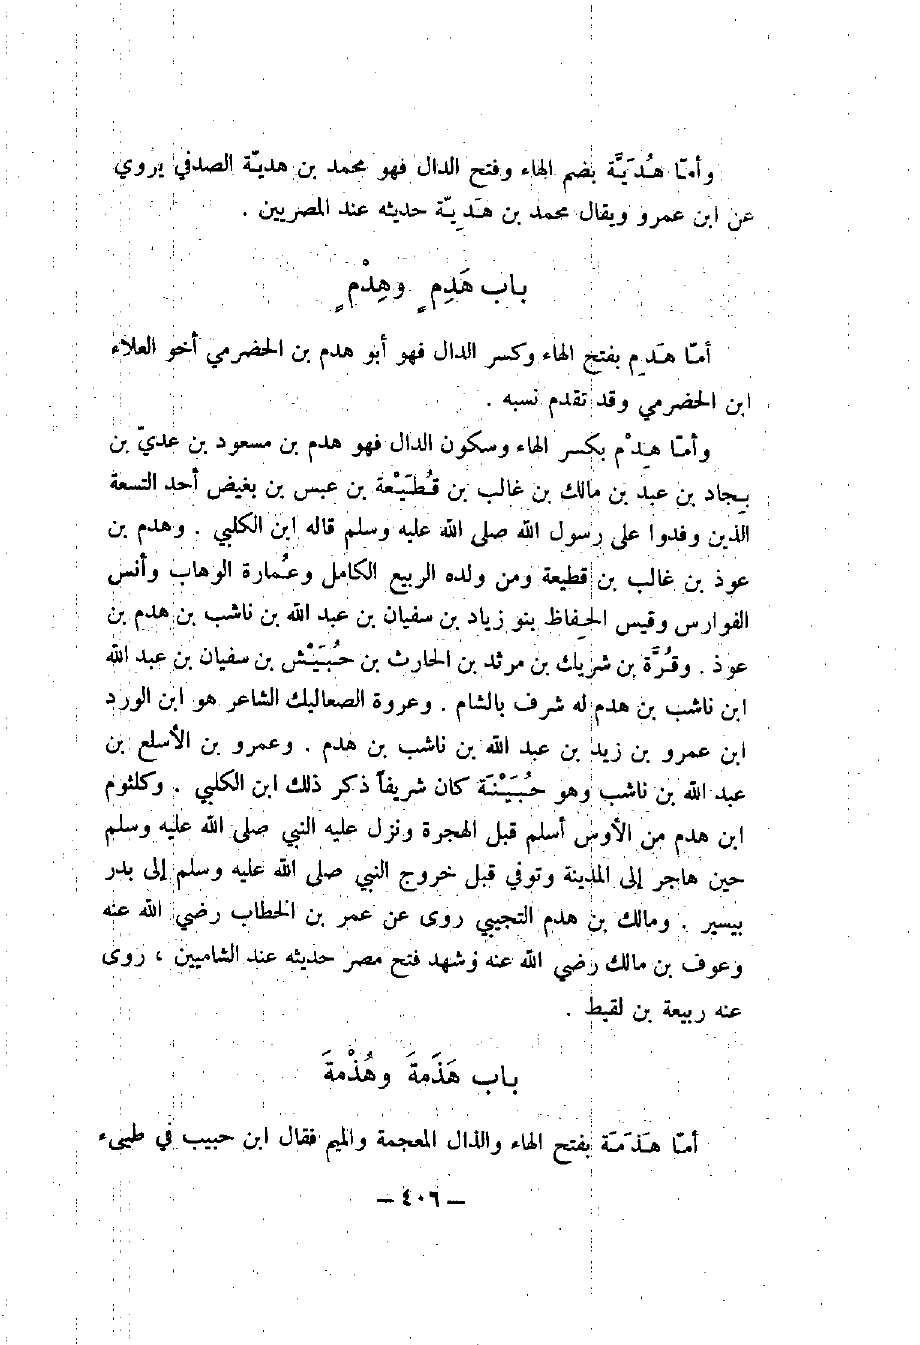 وأمّا هُدَيَّة بضم الهاء وفتح الدال فهو محمد بن هديّة الصدفي يروي
عن ابن عمرو ويقال محمد بن هَدِيّة حديثه عند المصريين .
باب هَدِمٍ وهِدْمٍ
أمّا هَدِم بفتح الهاء وكسر الدال فهو أبو هدم بن الحضرمي أخو العلاء
ابن الحضرمي وقد تقدم نسبه .
وأمّا هِدْم بكسر الهاء وسكون الدال فهو هدم بن مسعود بن عديّ بن
بجاد بن عبد بن مالك بن غالب بن قُطَيْعة بن عبس بن بغيض أحد التسعة
الذين وفدوا على رسول الله صلى الله عليه وسلم قاله ابن الكلبي . وهدم بن
عوذ بن غالب بن قطيعة ومن ولده الربيع الكامل وعُمارة الوهاب وأنس
الفوارس وقيس الحِفاظ بنو زياد بن سفيان بن عبد الله بن ناشب بن هدم بن
عوذ . وقُرَّة بن شريك بن مرثد بن الحارث بن حُبَيْش بن سفيان بن عبد الله
ابن ناشب بن هدم له شرف بالشام . وعروة الصعاليك الشاعر هو ابن الورد
ابن عمرو بن زيد بن عبد الله بن ناشب بن هدم . وعمرو بن الأسلع بن
عبد الله بن ناشب وهو حُبَيْنَة كان شريفاً ذكر ذلك ابن الكلبي . وكلثوم
ابن هدم من الأوس أسلم قبل الهجرة ونزل عليه النبي صلى الله عليه وسلم
حين هاجر إلى المدينة وتوفي قبل خروج النبي صلى الله عليه وسلم إلى بدر
بيسير . ومالك بن هدم التجيبي روى عن عمر بن الخطاب رضي الله عنه
وعوف بن مالك رضي الله عنه وشهد فتح مصر حديثه عند الشاميين ، روى
عنه ربيعة بن لقيط .
باب هَذَمَةَ وهُذْمَةَ
أمّا هَذَمَة بفتح الهاء والذال المعجمة والميم فقال ابن حبيب في طيىء
– ٤٠٦ –